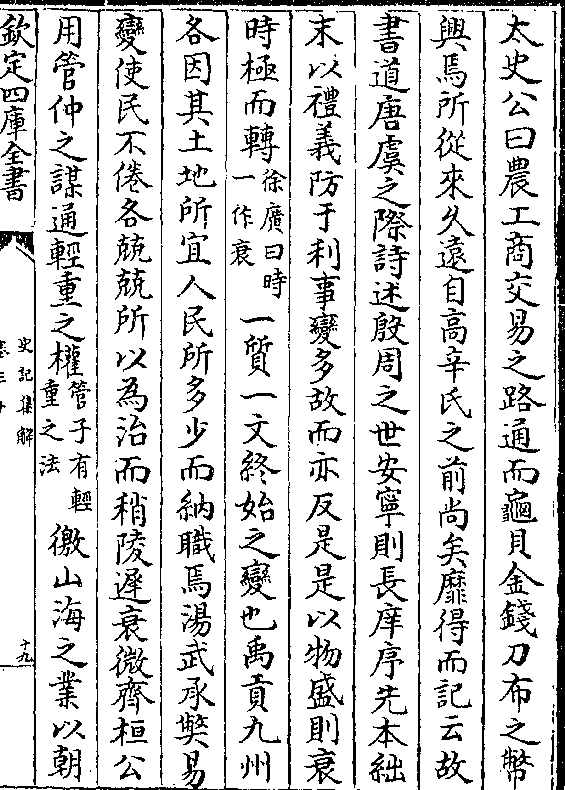 太史公曰農工商交易之路通而龜貝金錢刀布之幣
興焉所從來久遠自高辛氏之前尚矣靡得而記云故
書道唐虞之際詩述殷周之世安寧則長庠序先本絀
末以禮義防于利事變多故而亦反是是以物盛則衰
時極而轉徐廣曰時一作衰一質一文終始之變也禹貢九州
各因其土地所宜人民所多少而納職焉湯武承獘易
變使民不倦各兢兢所以為治而稍陵遲衰微齊桓公
用管仲之謀通輕重之權管子有輕重之法徼山海之業以朝
欽定四庫全書
史記集解
卷三十
十九